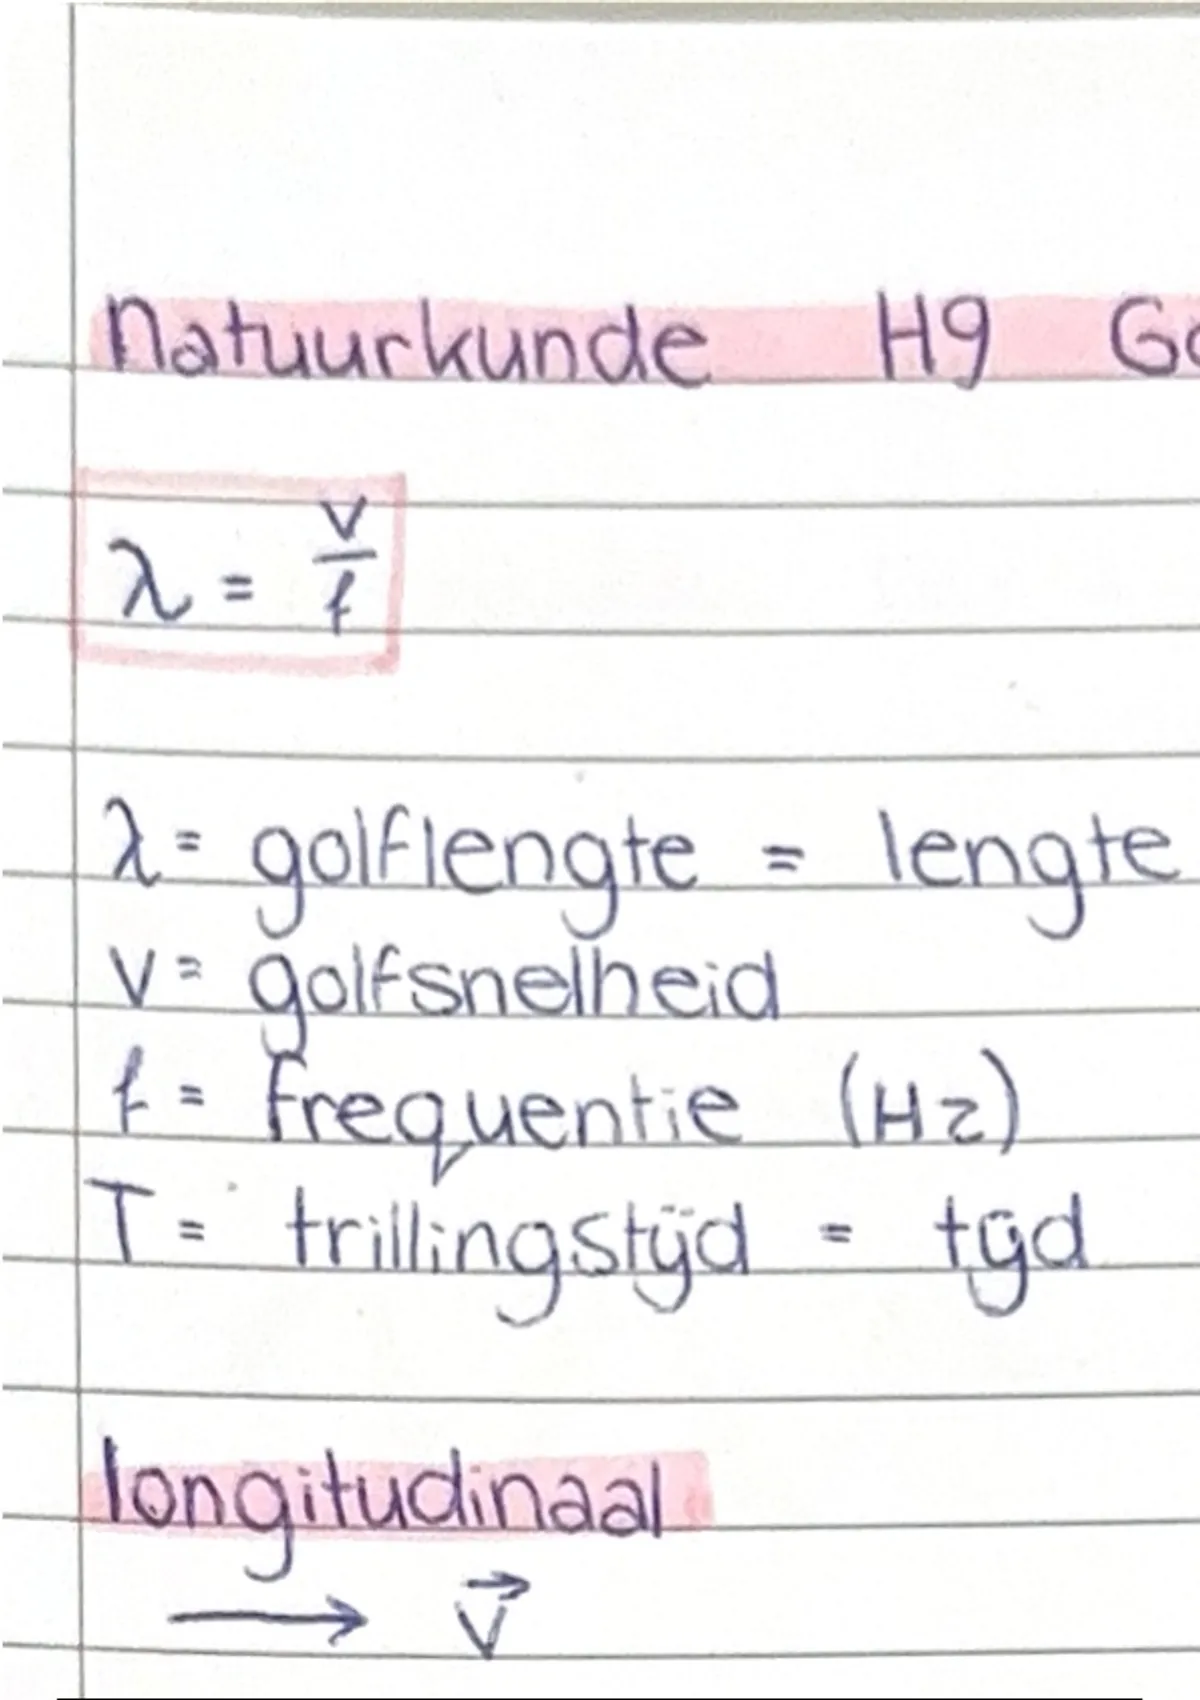 Natuurkunde H9 Go
λ = v/f
λ = golflengte = lengte
v = golfsnelheid
f = frequentie (Hz)
T = trillingstijd = tijd
longitudinaal
→ v⃗